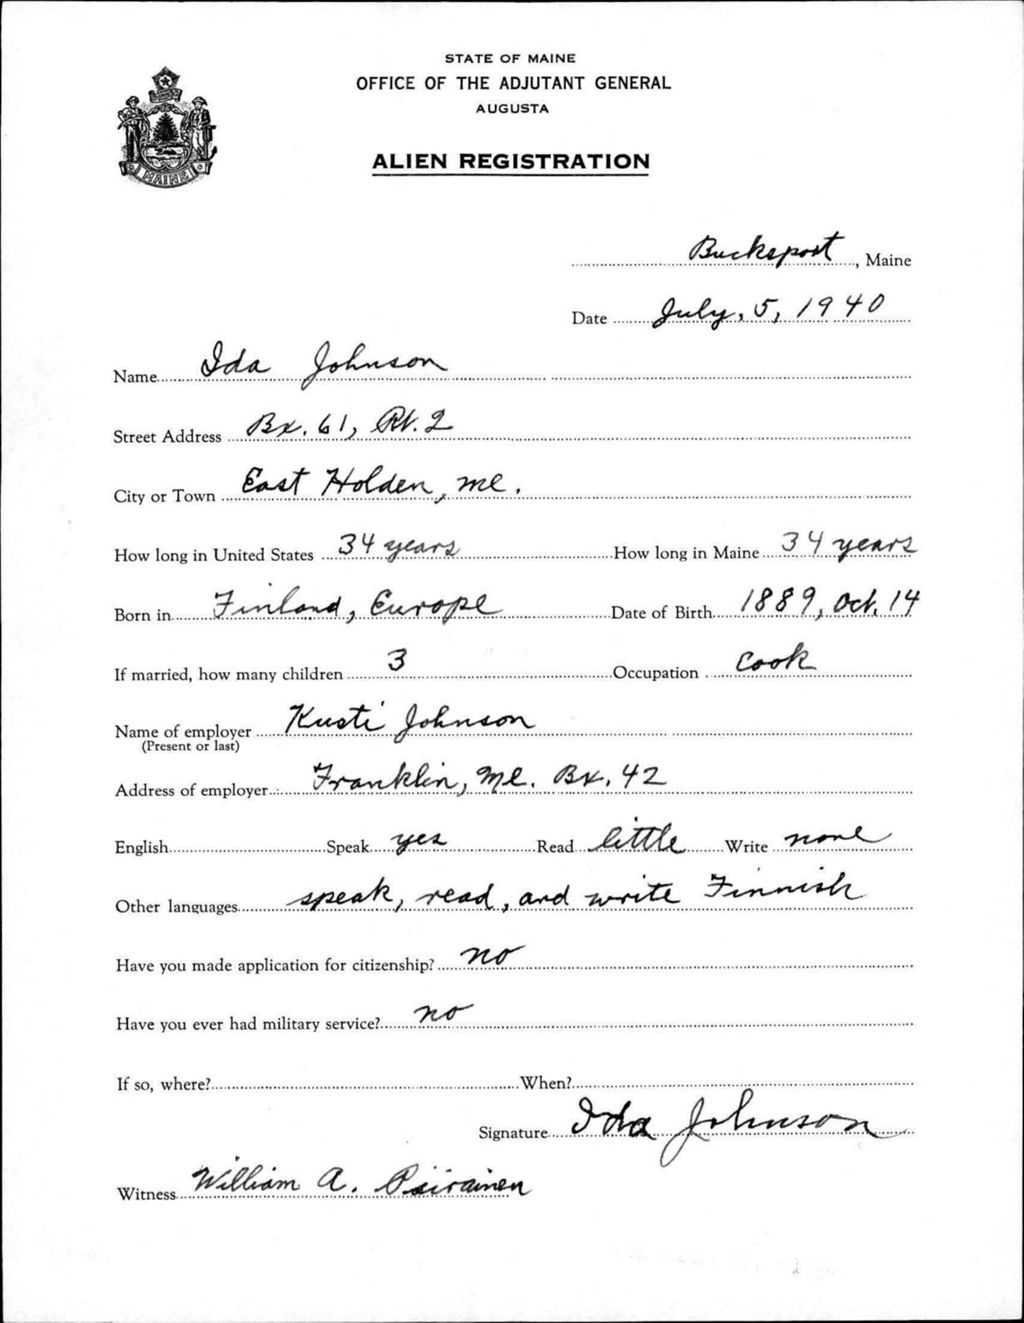 STATE OF MAINE
OFFICE OF THE ADJUTANT GENERAL
AUGUSTA
ALIEN REGISTRATION
MAINE
Bucksport, Maine
Date July, 5, 1940
Name Ida Johnson
Street Address Bx. 61, Rt. 2
City or Town East Holden, Me.
How long in United States 34 years How long in Maine 34 years
Born in Finland, Europe Date of Birth 1889, Oct. 14
If married, how many children 3 Occupation Cook
Name of employer Kusti Johnson
(Present or last)
Address of employer Franklin, Me. Bx. 42
English Speak yes Read little Write none
Other languages speak, read, and write Finnish
Have you made application for citizenship? no
Have you ever had military service? no
If so, where? When?
Signature Ida Johnson
Witness William A.